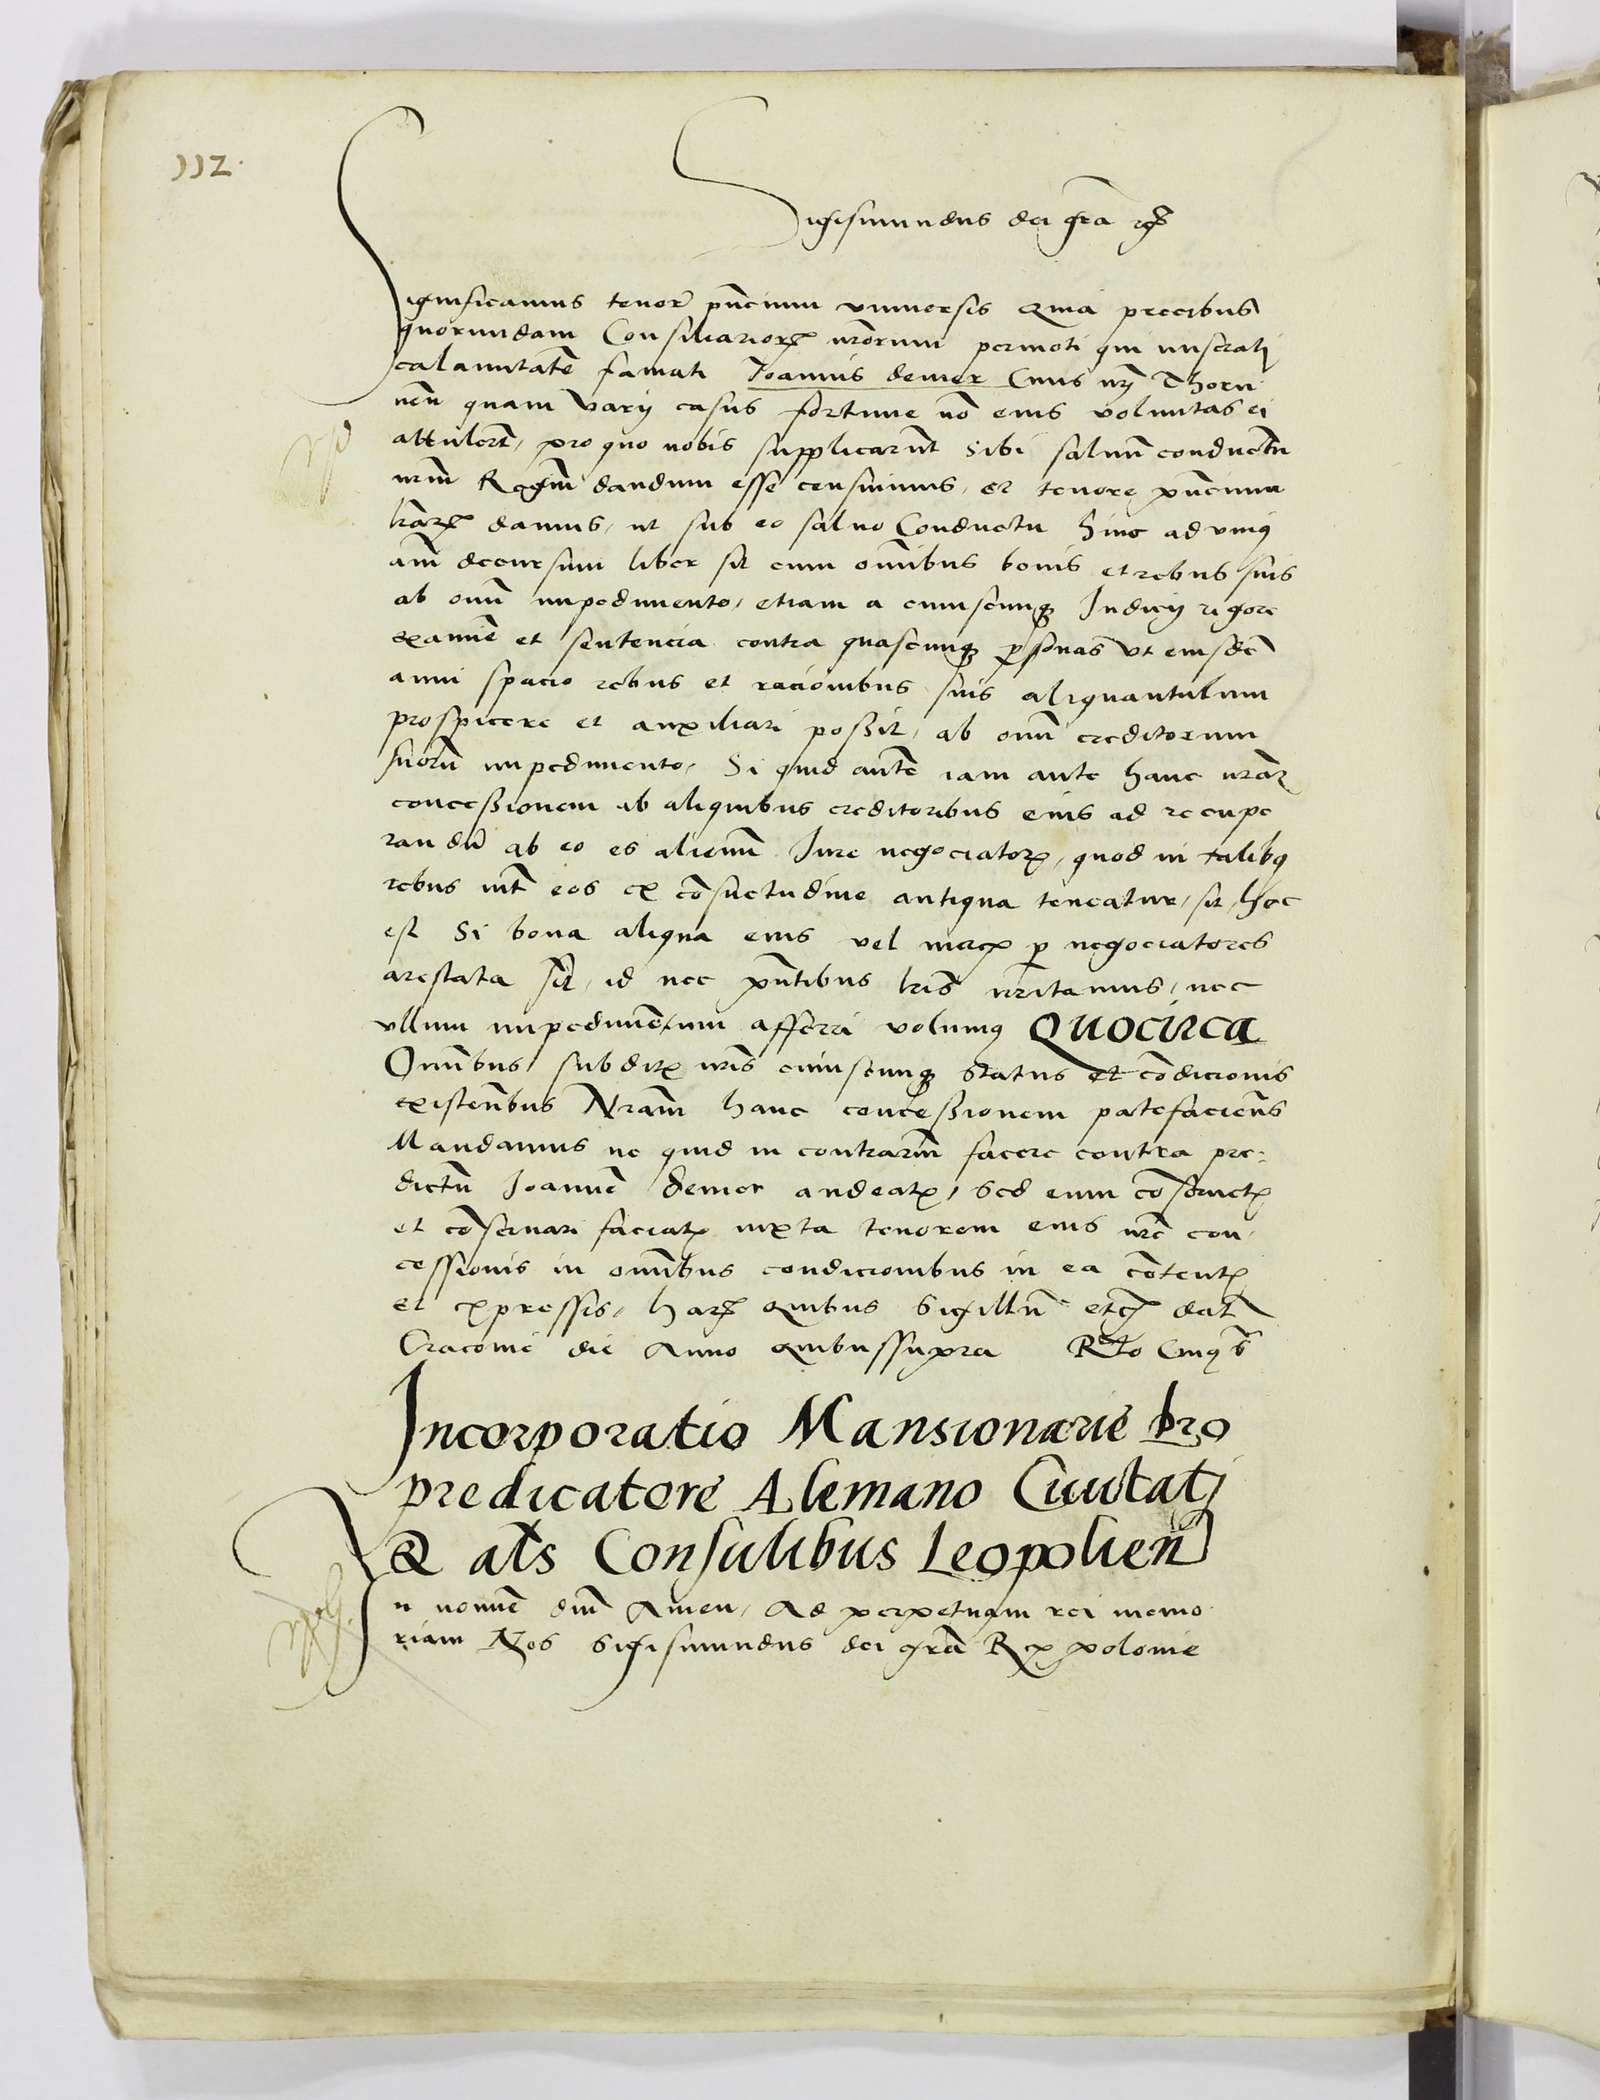 112.
Sigismundus dei gra rex
Significamus tenore pñcium vniuersis Quia precibus
quorundam Consiliarior nrorum permoti qui miserati
calamitatẽ famati Joannis demer Ciuis nrj Thoru
neñ quam varij casus fortune nõ eius voluntas ei
attulerũt, pro quo nobis supplicarũt sibi saluũ conductũ
nrm Regiũ dandum esse censuimus, et tenore pñcium
lrar damus, ut sub eo saluo Conductu hinc ad vniꝰ
anñ decursum liber sit cum omnibus bonis et rebus suis
ab omĩ impedimento, etiam a cuiuscunqꝫ Iudicij rigore
examie et sentencia contra quascunqꝫ psonas vt eiusdẽ
anni spacio rebus et racionibus suis aliquantulum
prospicere et auxiliari possit, ab omĩ creditorum
suorũ impedimento. Si quid autẽ iam ante hanc nram
concessionem ab aliquibus creditoribus eius ad recupe
randũ ab eo es alienũ Iure negociator, quod in talibꝰ
rebus int eos ex cõsuetudine antiqua teneatur, sit, hoc
est Si bona aliqua eius vel merces p negociatores
arestata sit, id nec pñtibus lris irritamus, nec
vllum impedimentum afferri volumꝰ Quocirca
Omibus subditis nris cuiuscunqꝫ status et cõdicionis
existentibus Nram hanc concessionem patefaciens
Mandamus ne quid in contrariũ facere contra pre-
dictũ Joannẽ demer audeatis, sed eum cõseruetis
et cõseruari faciatis iuxta tenorem eius nre con-
cessionis in omibus condicionibus in ea cõtentis
et expressis, har quibus Sigillũ etc dat
Cracouie die Anno quibussupra Rlo eiusqꝫ
Incorporatio Mansionarie pro
predicatore Alemano Ciuitatj
& als Consulibus Leopolieñ
In nomie dñi Amen, Ad perpetuam rei memo
riam Nos Sigismundus dei gra Rex polonie